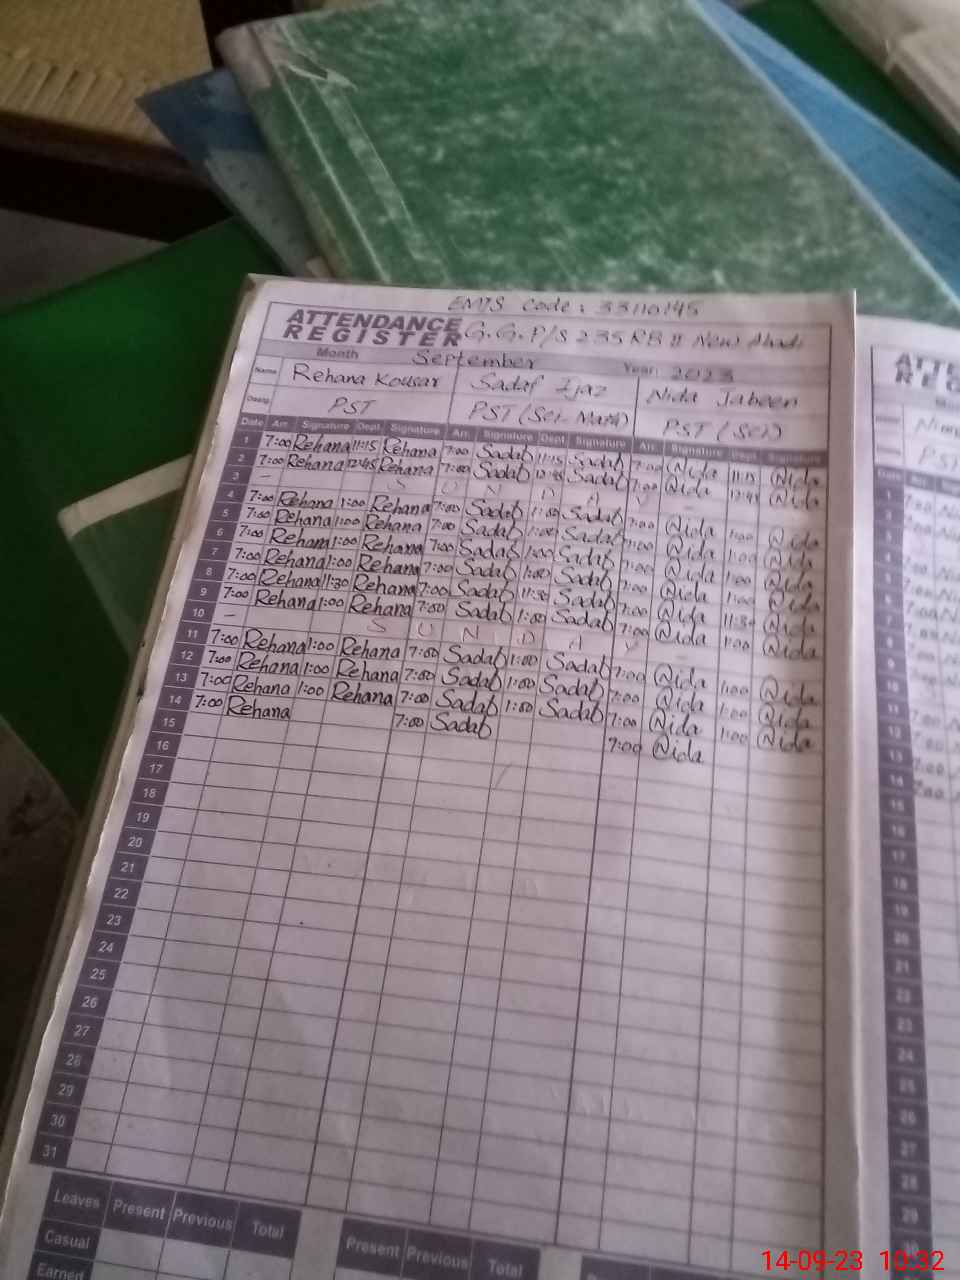 EMIS Code: 33110145
ATTENDANCE REGISTER G.G.P/S 235 RB II New Abadi
Month September Year: 2023
Name Rehana Kousar Sadaf Ijaz Nida Jabeen
Desig. PST PST (Sci-Math) PST (Sci)
Date Arr. Signature Dept. Signature Arr. Signature Dept. Signature Arr. Signature Dept. Signature
1 7:00 Rehana 11:15 Rehana 7:00 Sadaf 11:15 Sadaf 7:00 Nida 11:15 Nida
2 7:00 Rehana 12:45 Rehana 7:00 Sadaf 12:45 Sadaf 7:00 Nida 12:45 Nida
3 — S U N D A Y —
4 7:00 Rehana 1:00 Rehana 7:00 Sadaf 1:00 Sadaf 7:00 Nida 1:00 Nida
5 7:00 Rehana 1:00 Rehana 7:00 Sadaf 1:00 Sadaf 7:00 Nida 1:00 Nida
6 7:00 Rehana 1:00 Rehana 7:00 Sadaf 1:00 Sadaf 7:00 Nida 1:00 Nida
7 7:00 Rehana 1:00 Rehana 7:00 Sadaf 1:00 Sadaf 7:00 Nida 1:00 Nida
8 7:00 Rehana 11:30 Rehana 7:00 Sadaf 11:30 Sadaf 7:00 Nida 11:30 Nida
9 7:00 Rehana 1:00 Rehana 7:00 Sadaf 1:00 Sadaf 7:00 Nida 1:00 Nida
10 — S U N D A Y —
11 7:00 Rehana 1:00 Rehana 7:00 Sadaf 1:00 Sadaf 7:00 Nida 1:00 Nida
12 7:00 Rehana 1:00 Rehana 7:00 Sadaf 1:00 Sadaf 7:00 Nida 1:00 Nida
13 7:00 Rehana 1:00 Rehana 7:00 Sadaf 1:00 Sadaf 7:00 Nida 1:00 Nida
14 7:00 Rehana 7:00 Sadaf 7:00 Nida
15
16
17
18
19
20
21
22
23
24
25
26
27
28
29
30
31
Leaves Present Previous Total Present Previous Total
Casual
Earned
14-09-23 10:32